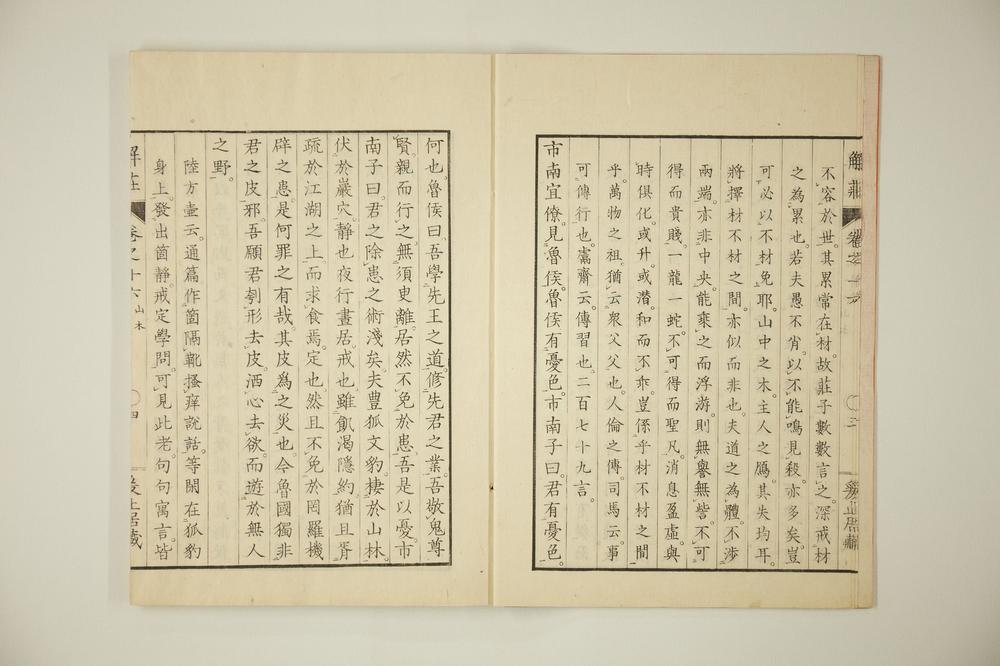 解莊 卷之十六
不容於世。其累常在材。故莊子數數言之。深戒材
之為累也。若夫愚不肖。以不能鳴見殺。亦多矣。豈
可必以不材免耶。山中之木。主人之鴈。其失均耳。
將擇材不材之間。亦似而非也。夫道之為體。不渉
兩端。亦非中央。能乗之而浮游。則無譽無訾。不可
得而貴賤。一龍一蛇。不可得而聖凡。消息盈虛。與
時俱化。或升。或潛。和而不乖。豈係乎材不材之間
乎。萬物之祖。猶云衆父父也。人倫之傳。司馬云。事
可傳行也。鬳齋云。傳習也。二百七十九言。
市南宜僚。見魯侯。魯侯有憂色。市南子曰。君有憂色。
何也。魯侯曰。吾學先王之道。修先君之業。吾敬鬼尊
賢。親而行之。無須臾離。居然不免於患。吾是以憂。市
南子曰。君之除患之術淺矣。夫豊狐文豹。棲於山林。
伏於巖穴。靜也。夜行晝居。戒也。雖飢渴隱約。猶且胥
疏於江湖之上。而求食焉。定也。然且不免於罔羅機
辟之患。是何罪之有哉。其皮爲之災也。今魯國獨非
君之皮邪。吾願君刳形去皮。洒心去欲。而遊於無人
之野。
陸方壷云。通篇作箇隔靴搔痒説話。等閒在狐豹
身上。發出箇靜戒定學問。可見此老句句寓言。皆
解莊 卷之十六 山木 四